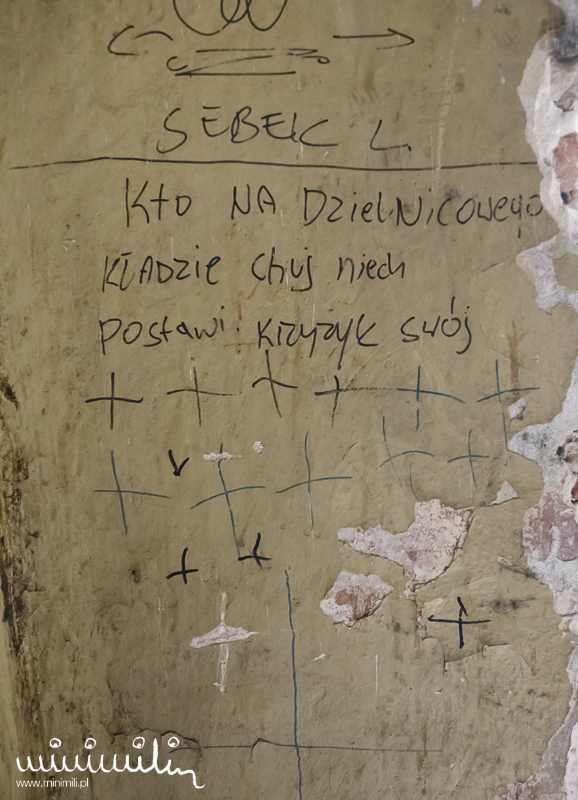 SEBEK L.
Kto NA DzielNicowego
KŁADZIE chuj niech
postawi krzyżyk swój
minimili
www.minimili.pl